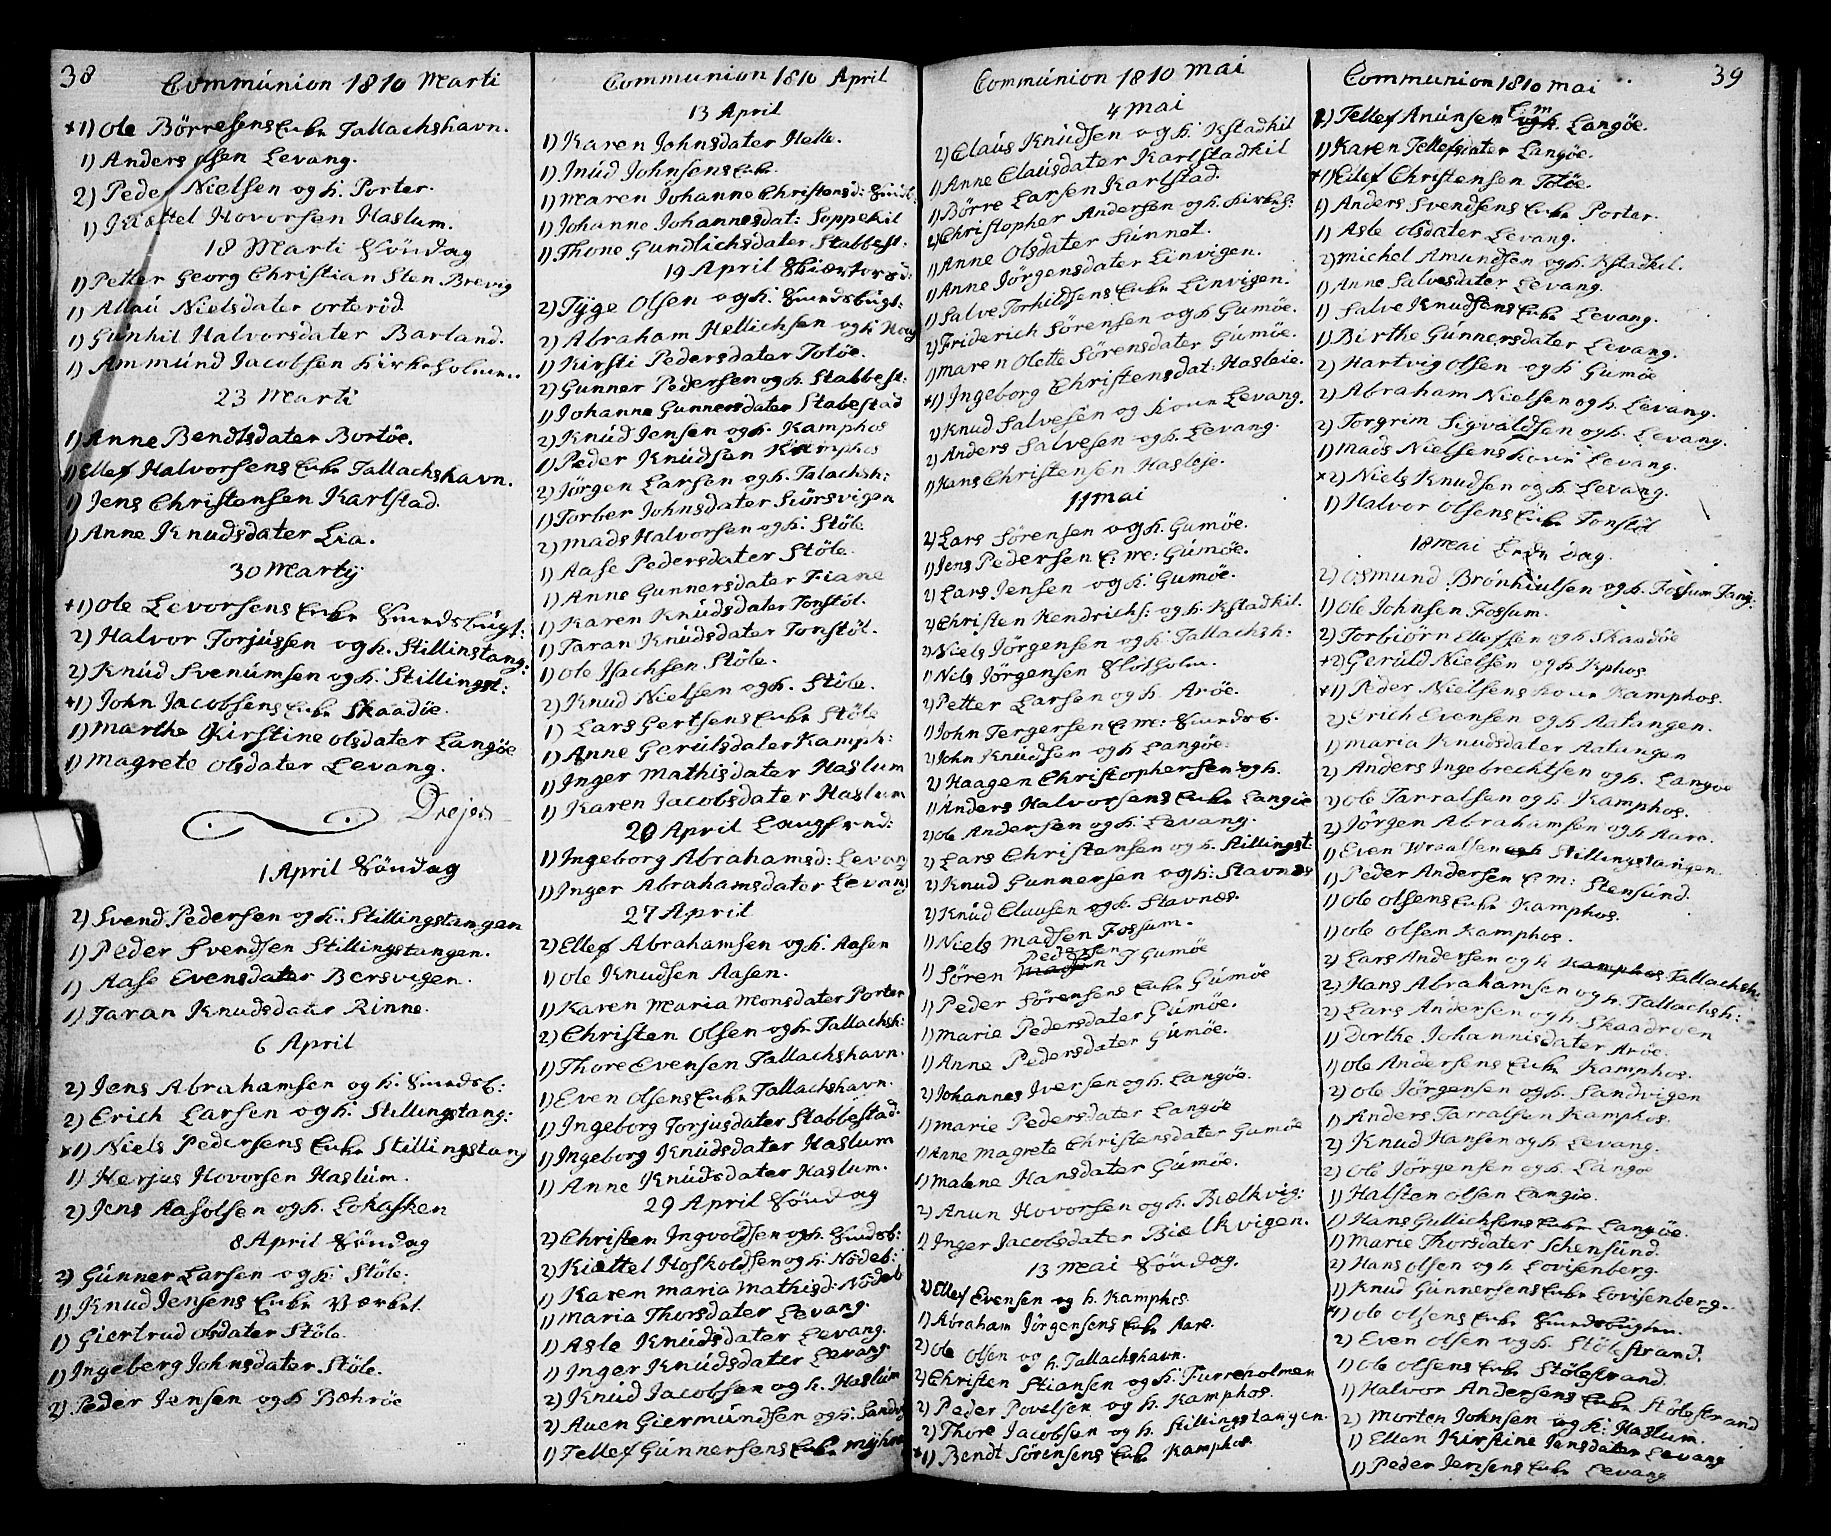 38
Communion 1810 Marti
+1) Ole Börresens Enke Tallachshavn.
1) Anders Levang.
2) Peder Nielsen og h. Porter.
1) Kiettel Hovorsen Haslum.
18 Marti Söndag
1) Petter Georg Christian Sten Brevig
1) Allau Nielsdater Orteröd
1) Gunhil Halvorsdater Barland.
1) Ammund Jacobsen Kirkeholmen.
23 Marti
1) Anne Bendtsdater Bortöe.
1) Ellef Halvorsens Enke Tallachshavn.
1) Jens Christensen Karlstad.
1) Anne Knudsdater Lia.
30 Martij
+1) Ole Levorsens Enke Smedsbugt:
2) Halvor Torjussen og h. Stillinstang:
2) Knud Svenumsen og h: Stillingst:
+1) John Jacobsens Enke Skaadöe.
1) Marthe Kirstine Olsdater Langöe
1) Magrete Olsdater Levang.
Drejer
1 April Söndag
2) Svend Pedersen og h: Stillingstangen
1) Peder Svendsen Stillingstangen.
1) Aase Evensdater Bersvigen.
1) Taran Knudsdater Rinne.
6 April
2) Jens Abrahamsen og h. Smedsb:
2) Erich Larsen og h: Stillingstang:
x1) Niels Pedersens Enke Stillingstang
1) Herjus Hovorsen Haslum.
2) Jens Aasolsen og h. Lokasken
8 April Söndag
2) Gunner Larsen og h: Stöle.
1) Knud Jensens Enke Værket.
1) Giertrud Olsdater Stöle.
1) Ingeberg Johnsdater Stöle.
2) Peder Jensen og h Bæhröe
Communion 1810 April
13 April
1) Karen Johnsdater Helle.
1) Inud Johnsens Enke.
1) Maren Johanne Christensd: Smidt:
1) Johanne Johannesdat: Soppekil
1) Thone Gundlichsdater Stabbest:
19 April Skiærtorsd:
2) Tÿge Olsen og h. Smedsbugt:
2) Abraham Hellichsen og h Houg
1) Kirsti Pedersdater Totöe.
2) Gunner Pedersen og h. Stabbest:
1) Johanne Gunnersdater Stabestad
2) Knud Jensen og h. Kamphos
1) Peder Knudsen Kamphos
2) Jörgen Larsen og h. Talachsh:
1) Torber Johnsdater Kursvigen
2) Mads Halvorsen og h: Stöle
1) Aase Pedersdater Stöle.
1) Anne Gunnersdater Fiane
1) Karen Knudsdater Tonstöl.
1) Taran Knudsdater Tonstöl.
1) Ole Isachsen Stöle.
2) Knud Nielsen og h. Stöle.
1) Lars Gertsens Enke Stöle
1) Anne Gerulsdater Kamph:
1) Inger Mathisdater Haslum
1) Karen Jacobsdater Haslum
20 April Langfred:
1) Ingeborg Abrahamsd: Levang
1) Inger Abrahamsdater Levang
27 April
2) Ellef Abrahamsen og h: Aasen
1) Ole Knudsen Aasen.
1) Karen Maria Monsdater Porter
2) Christen Olsen og h. Tallachsh:
1) Thore Evensen Tallachshavn.
1) Even Olsens Enke Tallachshavn.
1) Ingeborg Torjusdater Stabbestad.
1) Ingeborg Knudsdater Haslum
1) Anne Knudsdater Haslum.
29 April Söndag
2) Christen Ingvoldsen og h. Smedsb:
2) Kiættel Hoskoldsen og h: Nödeb:
1) Karen Maria Mathisd: Nödeb
1) Maria Thorsdater Levang.
1) Asle Knudsdater Levang.
1) Inger Knudsdater Levang
2) Knud Jacobsen og h. Haslum
2) Auen Giermundsen og h: Sandv
1) Tellef Gunnersens Enke Myhre
Communion 1810 Mai
4 Mai
2) Claus Knudsen og h. Kstadkil
1) Anne Clausdater Karlstadkil
1) Börre Larsen Karlstad.
2) Christopher Andersen og h. Kirkeh:
1) Anne Olsdater Sunnet.
1) Anne Jörgensdater Linvigen.
1) Salve Torkildsens Enke Linvigen.
2) Friderich Sörensen og h Gumöe.
1) Maren Olette Sörensdater Gumöe.
+1) Ingeborg Christensdat: Hasleie.
2) Knud Salvesen og Kone Levang.
2) Anders Salvesen og h. Levang.
1) Hans Christensen Hasleje.
11 Mai
2) Lars Sörensen og h. Gumöe.
1) Jens Pedersen E. M: Gumöe.
2) Lars Jensen og h: Gumöe.
2) Christen Hendrichs: og h. Kstadkil.
2) Niels Jörgensen og h. Tallachsh:
1) Nils Jörgensen Slotholm.
2) Petter Larsen og h. Aröe.
1) John Tergersen E. M: Smedsb.
2) John Knudsen og h Langöe.
2) Haagen Christophersen og h.
1) Anders Halvorsens Enke Langöe
2) Ole Andersen og h. Levang.
2) Lars Christensen og h. Stillingst:
2) Knud Gunnersen og h: Stavnæs
2) Knud Clausen og h. Stavnæs.
1) Niels Madsen Fossum.
Pedersen
1) Sören Madsen I Gumöe
1) Peder Sörensens Enke Gumöe
1) Marie Pedersdater Gumöe.
1) Anne Pedersdater Gumöe.
2) Johannes Iversen og h. Langöe.
1) Marie Pedersdater Langöe
1) Anne Magrete Christensdater Gumöe
1) Malene Hansdater Gumöe.
2) Anun Hovorsen og h. Bielkvig:
1) Inger Jacobsdater Bielkvigen.
13 Mai Söndag.
2) Ellef Evensen og h. Kamphos
1) Abraham Jörgensens Enke Aare.
2) Ole Olsen og h. Tallachshavn.
2) Christen Stiansen og h. Furreholmen
2) Peder Povelsen og h. Kamphos.
2) Thore Jacobsen og h. Stillingstangen.
+1) Bendt Sörensens Enke Kamphos.
Communion 1810 Mai
39
E. M
1) Tellef Anunsen og h. Langöe.
1) Karen Tellefsdater Langöe.
+1) Eilef Christensen Totöe.
1) Anders Svendsens Enke Porter.
1) Asle Olsdater Levang.
2) Michel Amundsen og h. Kstadkil.
1) Anne Salvesdater Levang.
1) Salve Knudsens Enke Levang.
1) Birthe Gunnersdater Levang.
2) Hartvig Olsen og h Gumöe
2) Abraham Nielsen og h. Levang.
2) Torgrim Sigvaldsen og h. Levang.
1) Mads Nielsens Kone Levang.
x2) Niels Knudsen og h. Levang.
1) Halvor Olsens Enke Tonstöl
18 Mai Bededag.
2) Osmund Brönhiulsen og h. Fossum Tang:
1) Ole Johnsen Fossum.
2) Torbiörn Ellefsen og h Skaadöe
+2) Geruld Nielsen og h Kphos
+1) Peder Nielsens Kone Kamphos.
2) Erich Evensen og h Aatangen.
1) Maria Knudsdater Aatangen
2) Anders Ingebrechtsen og h. Langöe
2) Ole Tarralsen og h. Kamphos.
2) Jörgen Abrahamsen og h Aare.
1) Even Wraalsen og h Stillingstangen.
1) Peder Andersen E M: Stensund.
1) Ole Olsens Enke Kamphos.
1) Ole Olsen Kamphos.
2) Lars Andersen og h Kamphos Tallachsh:
2) Hans Abrahamsen og h. Tallachsh:
2) Lars Andersen og h Skaadöen
1) Dorthe Johannisdater Aröe.
1) Ole Andersens Enke Kamphos.
2) Ole Jörgensen og h. Sandvigen
1) Anders Tarralsen Kamphos.
2) Knud Hansen og h. Levang.
2) Ole Jörgensen og h. Langöe
1) Halsten Olsen Langöe.
1) Hans Gullichsens Enke Langöe.
1) Marie Thorsdater Schensund.
2) Hans Olsen og h Lovisenberg.
1) Knud Gunnersens Enke Lovisenberg.
+1) Ole Olsens Enke Smedsbugten.
2) Even Olsen og h. Stölestrand.
1) Ole Olsens Enke Stölestrand.
1) Halvor Andersens Enke Stölestrand
2) Morten Johnsen og h: Haslum.
1) Ellen Kirstine Jensdater Levang
1) Peder Jensens Enke Levang